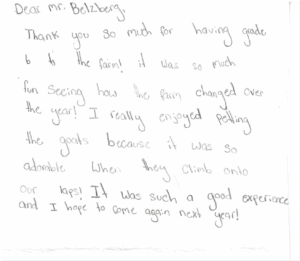 Dear mr. Belzberg,
Thank you so much for having grade
6 to the farm! it was so much
fun seeing how the farm changed over
the year! I really enjoyed petting
the goats because it was so
adorable when they climb onto
our laps! It was such a good experience
and I hope to come again next year!